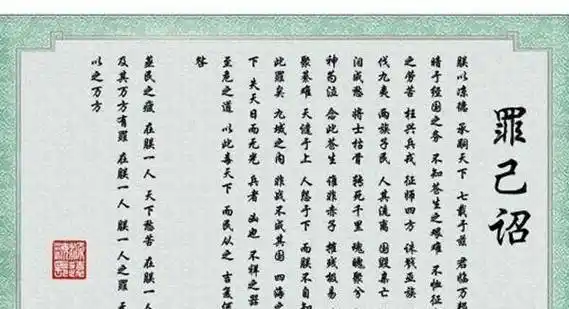 罪己诏
朕以凉德 承嗣天下 七载于兹 君临万
暗于经国之务 不知苍生之艰难 不恤征
之劳苦 枉兴兵戎 征师四方 诛戮亚族
伐九夷 两族子民 人其流离 国毁亡
泪成愁 将士枯骨 死千里 魂魄聚兮
神苟泣 念此苍生 谁非赤子 摧残极易
聚蓦难 天谴于上 人怨于下 而朕不自知
此罪矣 九城之内 非战不成其国 四海之
下 失天日而无光 兵者 凶也 不祥之器
至危之道 以此喜天下 而民从之 吉复
咎
蒸民之疲 在朕一人 天下愁苦 在朕一
及其万方有罪 在朕一人 朕一人之罪 无
以之万方